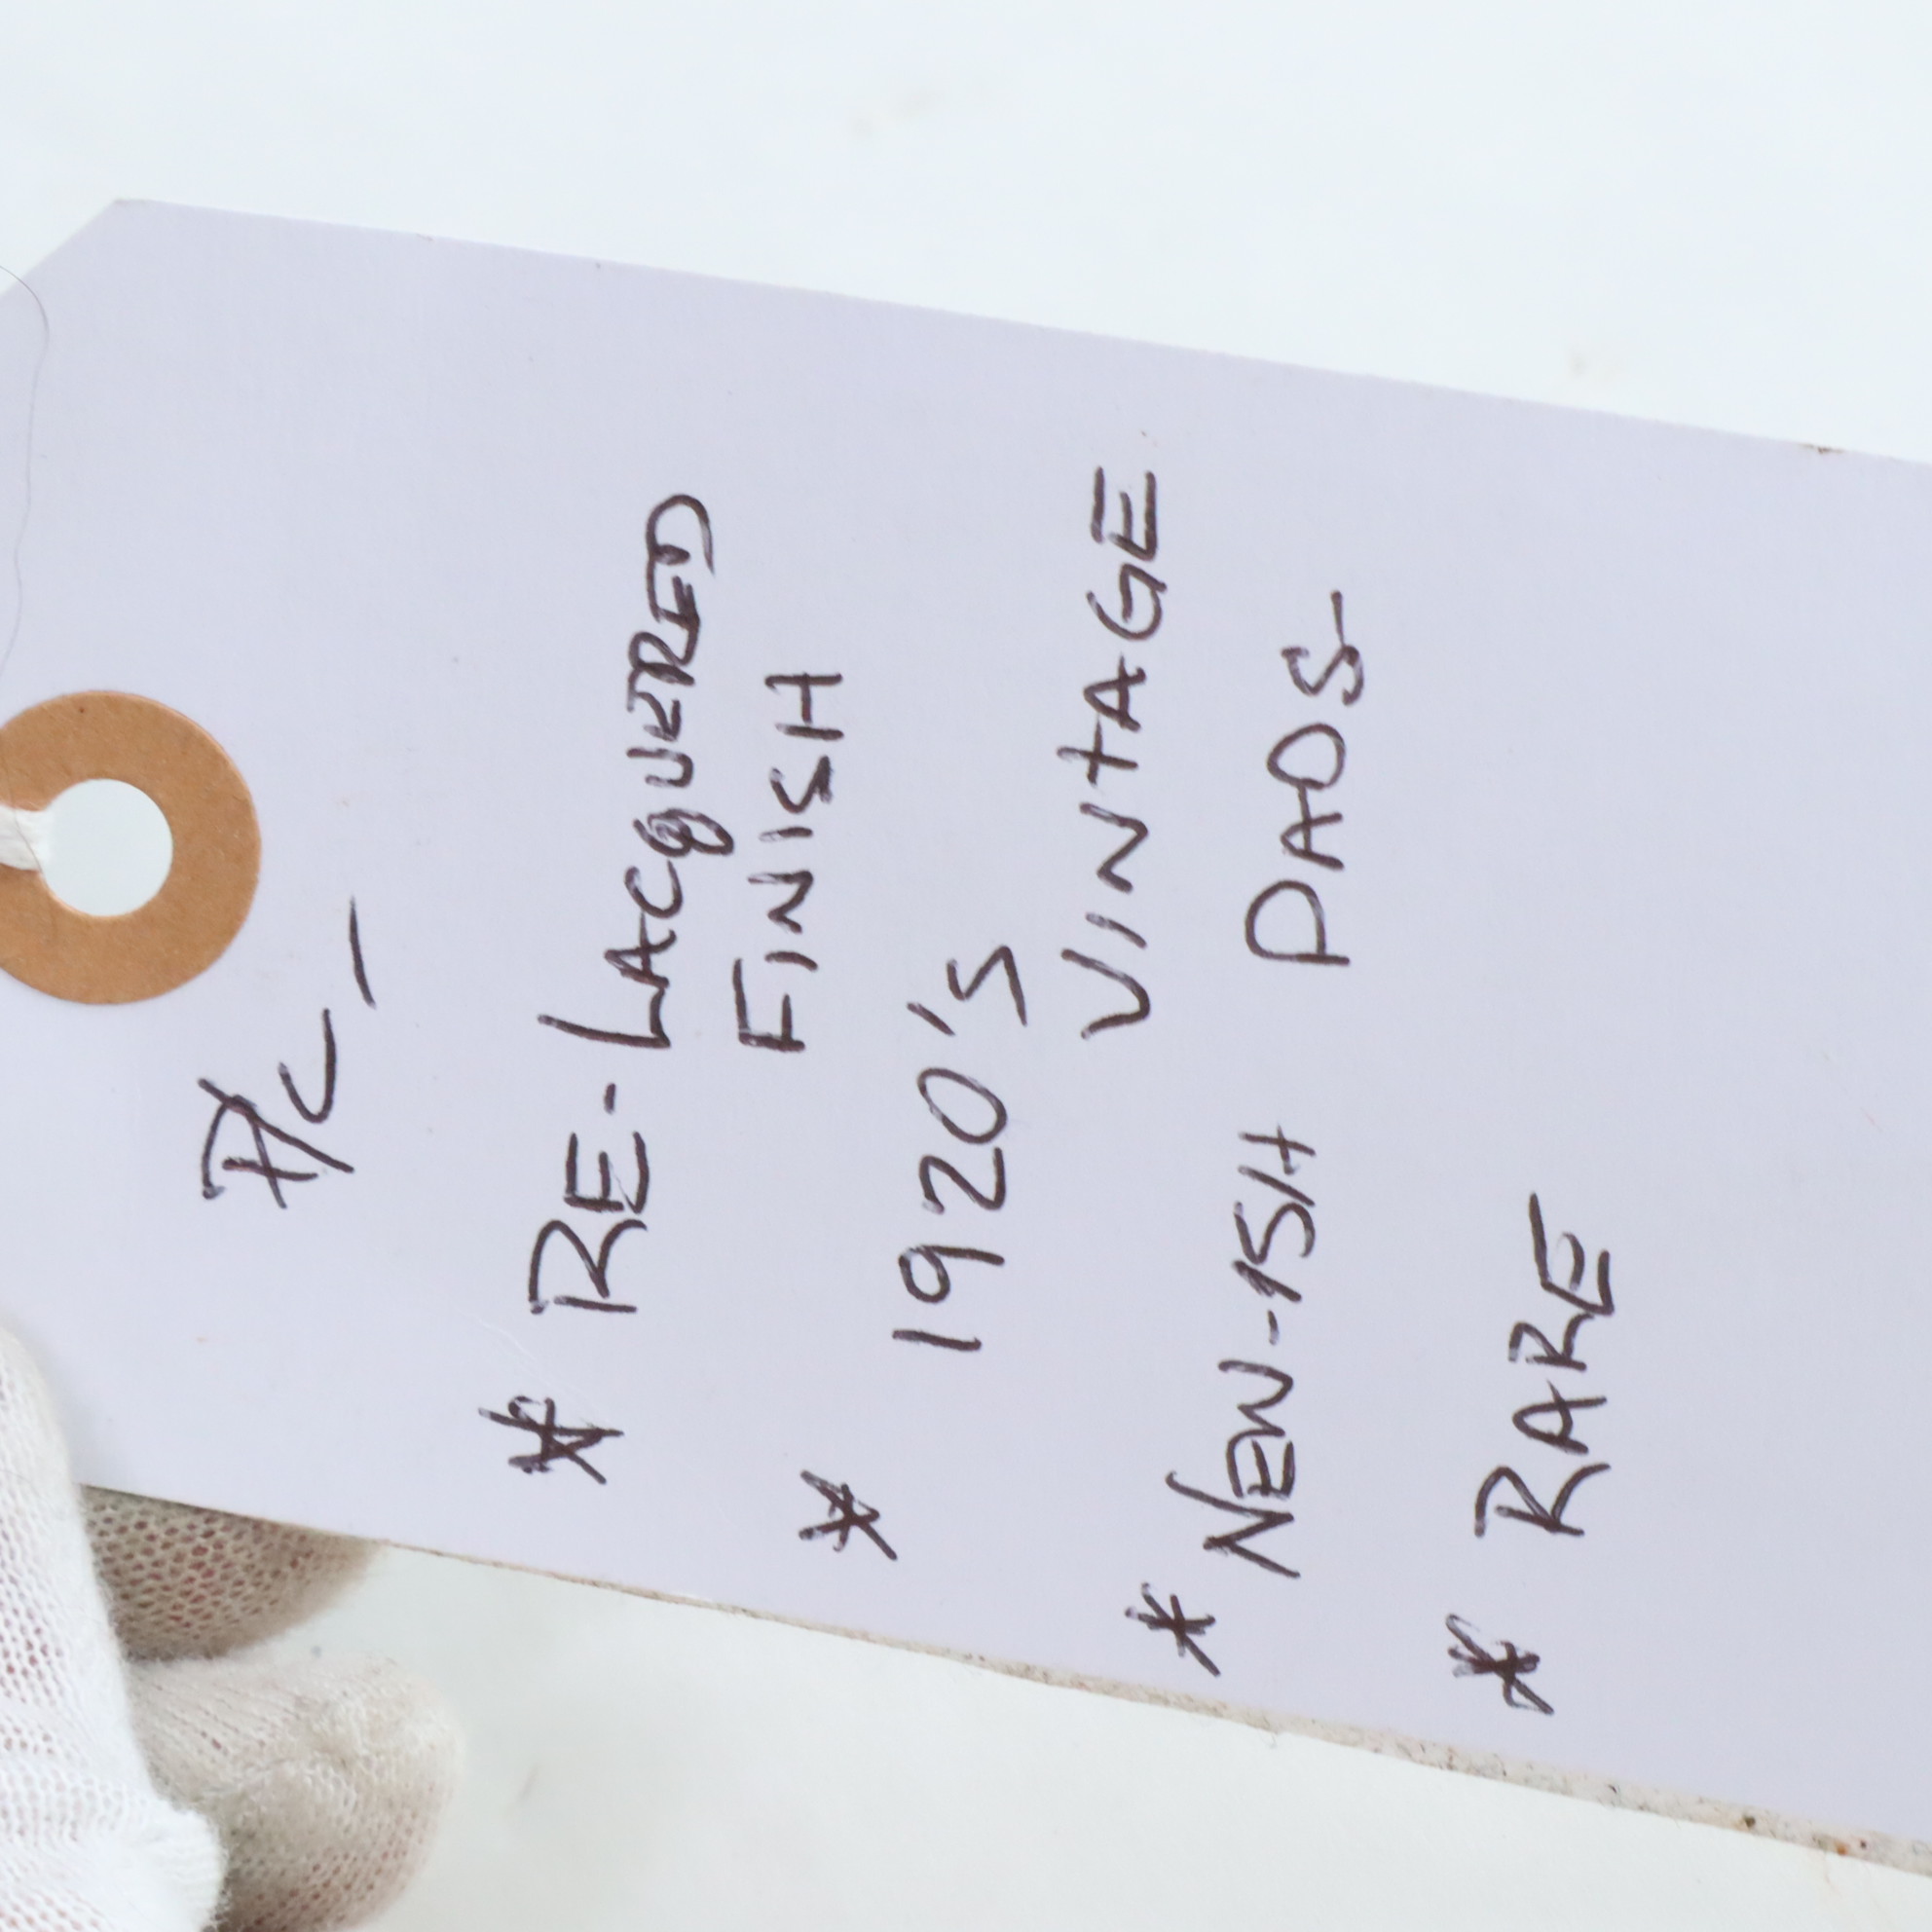 A/C -
* RE-LACQUERED
FINISH
* 1920's
VINTAGE
* NEW-ISH PADS
* RARE